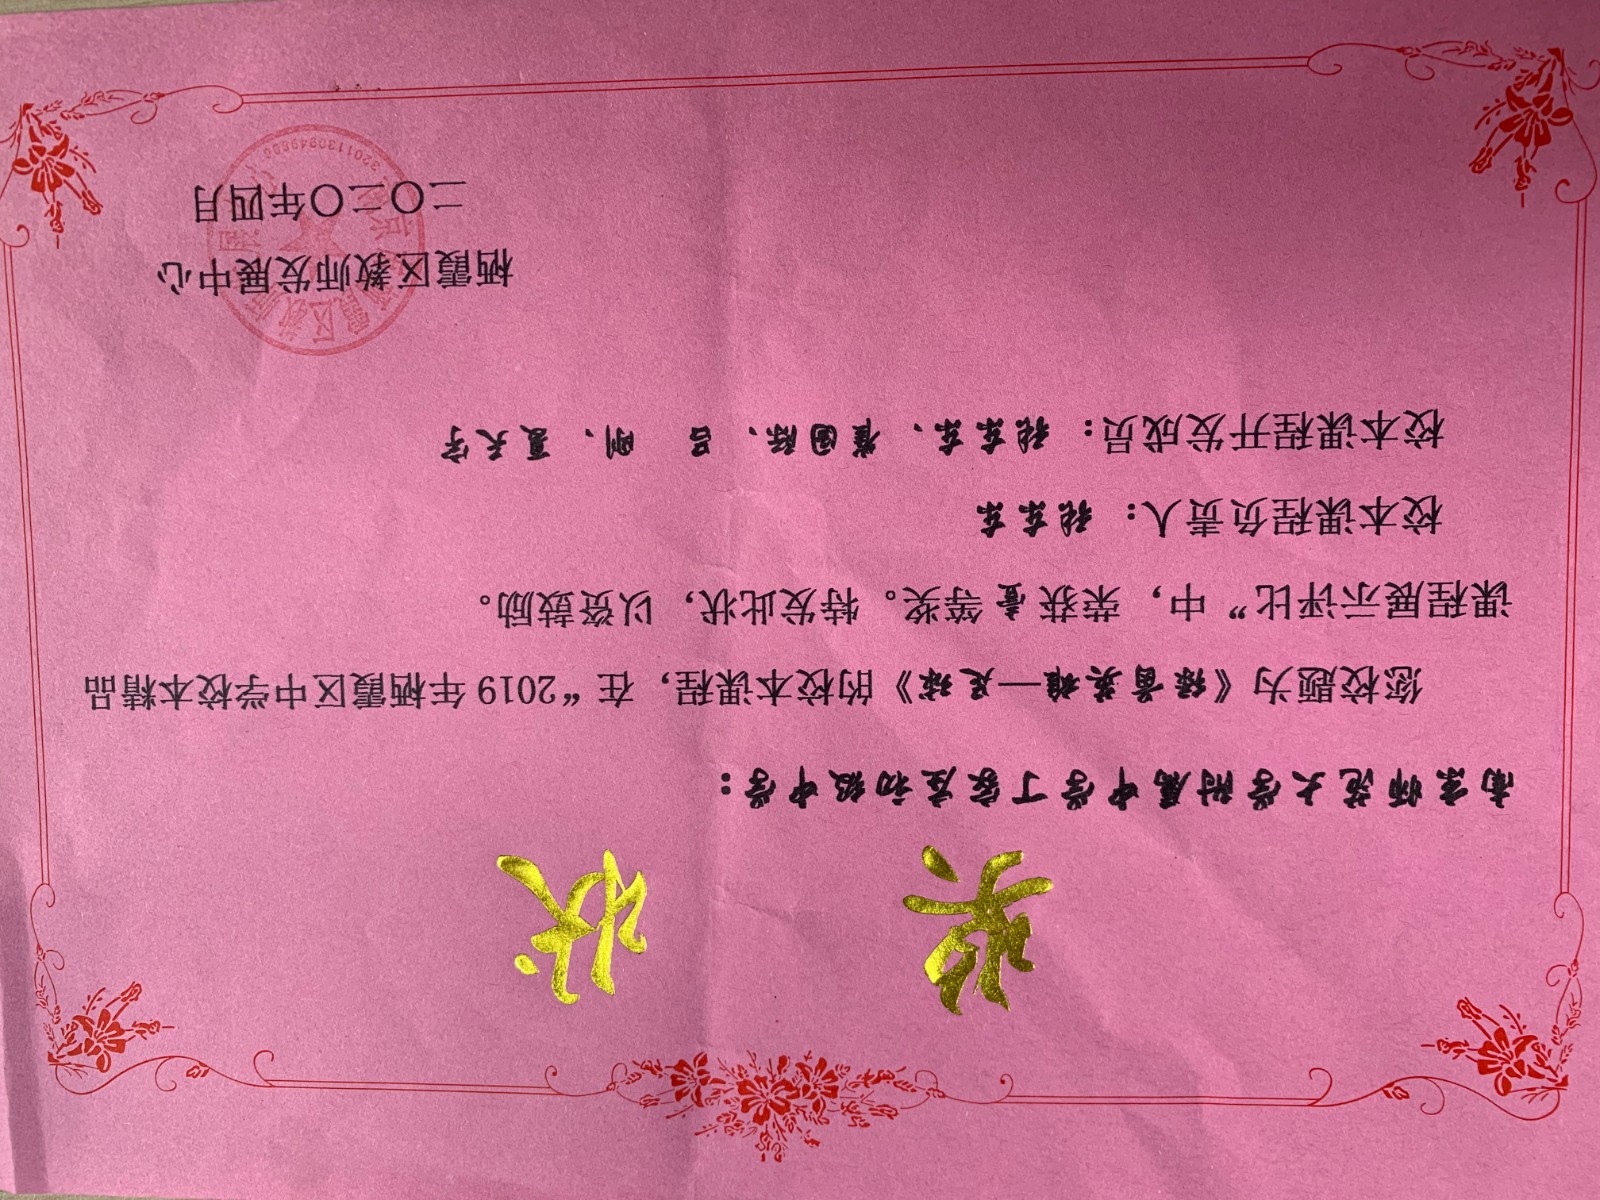 奖 状
南京师范大学附属中学丁家庄初级中学：
您校题为《绿茵英雄—足球》的校本课程，在“2019 年栖霞区中学校本精品
课程展示评比”中，荣获壹等奖。特发此状，以资鼓励。
校本课程负责人：
校本课程开发成员：崔国际、吕 刚、夏天宇
栖霞区教师发展中心
二〇二〇年四月